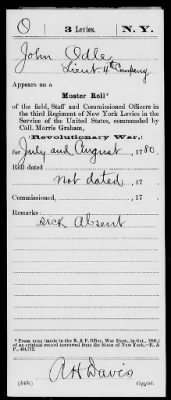 O | 3 Levies. | N. Y.
John Odle
Lieut 4th Company
Appears on a
Muster Roll*
of the field, Staff and Commissioned Officers in
the third Regiment of New York Levies in the
Service of the United States, commanded by
Coll. Morris Graham,
(Revolutionary War,)
for July and August, 1780.
Roll dated
not dated, 17
Commissioned, 17
Remarks
Sick Absent
* From copy made in the R. & P. Office, War Dept., in Oct.,
of an original record borrowed from the State of New York.—R. &
P.,
A H Davis
Copyist.